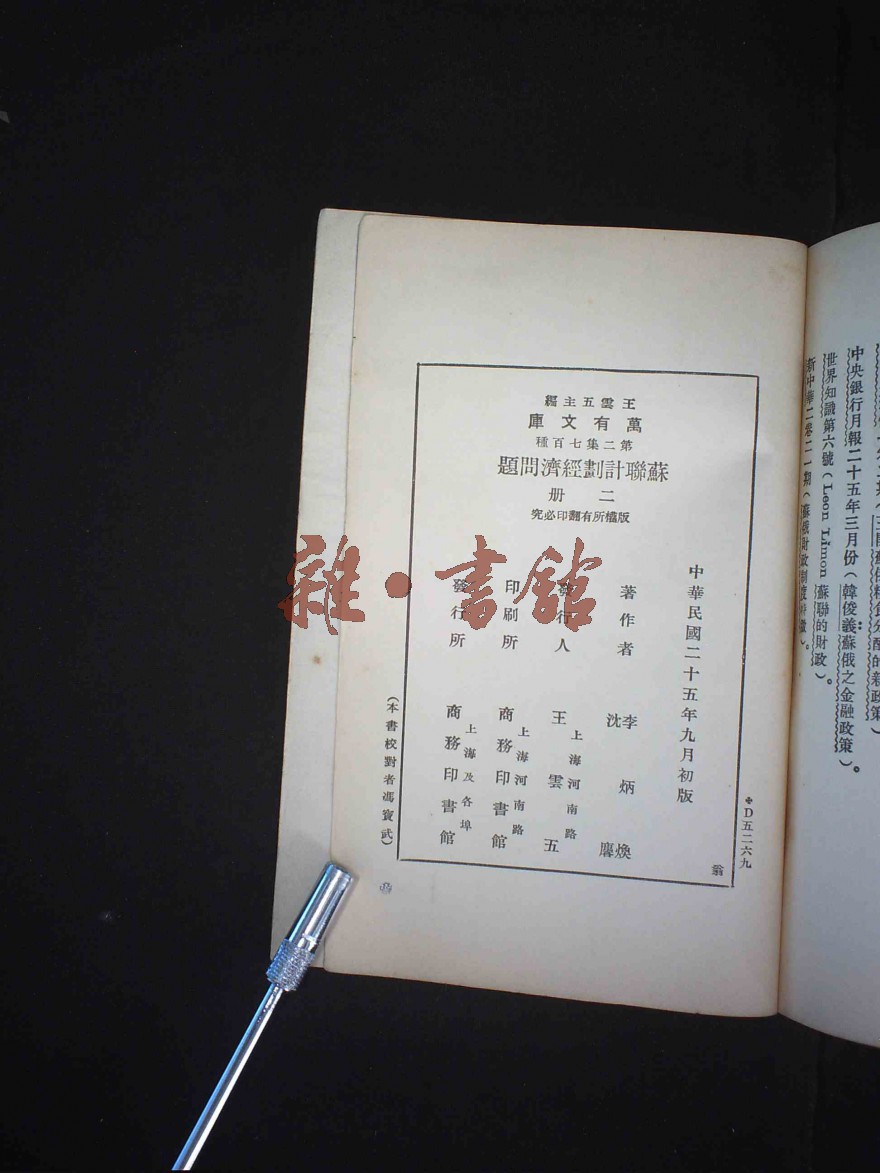 蘇俄糧食分配的新政策）
中央銀行月報二十五年三月份（韓俊義：蘇俄之金融政策）。
世界知識第六號（Leon Limon 蘇聯的財政）。
新中華二卷二一期（蘇俄財政制度
王雲五主編
萬有文庫
第二集七百種
蘇聯計劃經濟問題
二冊
版權所有翻印必究
D五二六九
中華民國二十五年九月初版
著作者 李炳煥
沈麐
發行人 王雲五
上海河南路
印刷所 商務印書館
上海河南路
發行所 商務印書館
上海及各埠
（本書校對者馮寶武）
翁
雜·書館